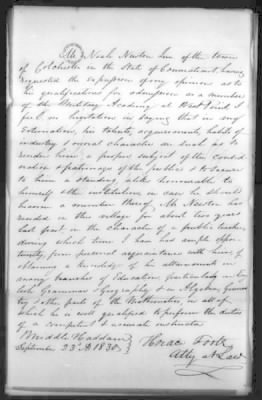 Mr. Noah Newton Jun of the town
of Colchester in the State of Connecticut, having
requested the expression of my opinion as to
his qualifications for admission as a member
of the Military Academy at West Point, I
feel no hesitation in saying that in my
estimation, his talents, acquirements, habits of
industry & moral character are such as to
render him a proper subject of the consid-
eration & patronage of the public & to
to him a standing alike honorable to
himself & the institution, in case he should
become a member thereof. Mr Newton has
resided in this village for about two years
last past, in the character of a public teacher,
during which time I have had ample oppor-
tunity, from personal acquaintance with him, of
obtaining a knowledge of his attainments in
many branches of Education, particularly in
Grammar & Geography & in Algebra,
& other parts of the Mathematics, in all of
which he is well qualified to perform the duties
of a competent & accurate instructor
Middle Haddam
September 23d 1830
Horace Foote
Atty at Law